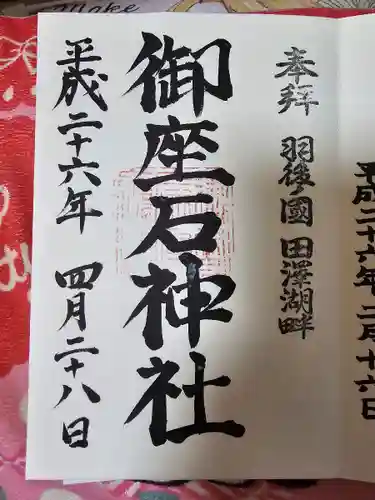 平成二十六年二月十六日
奉拝 羽後國 田澤湖畔
御座石神社
平成二十六年 四月二十八日